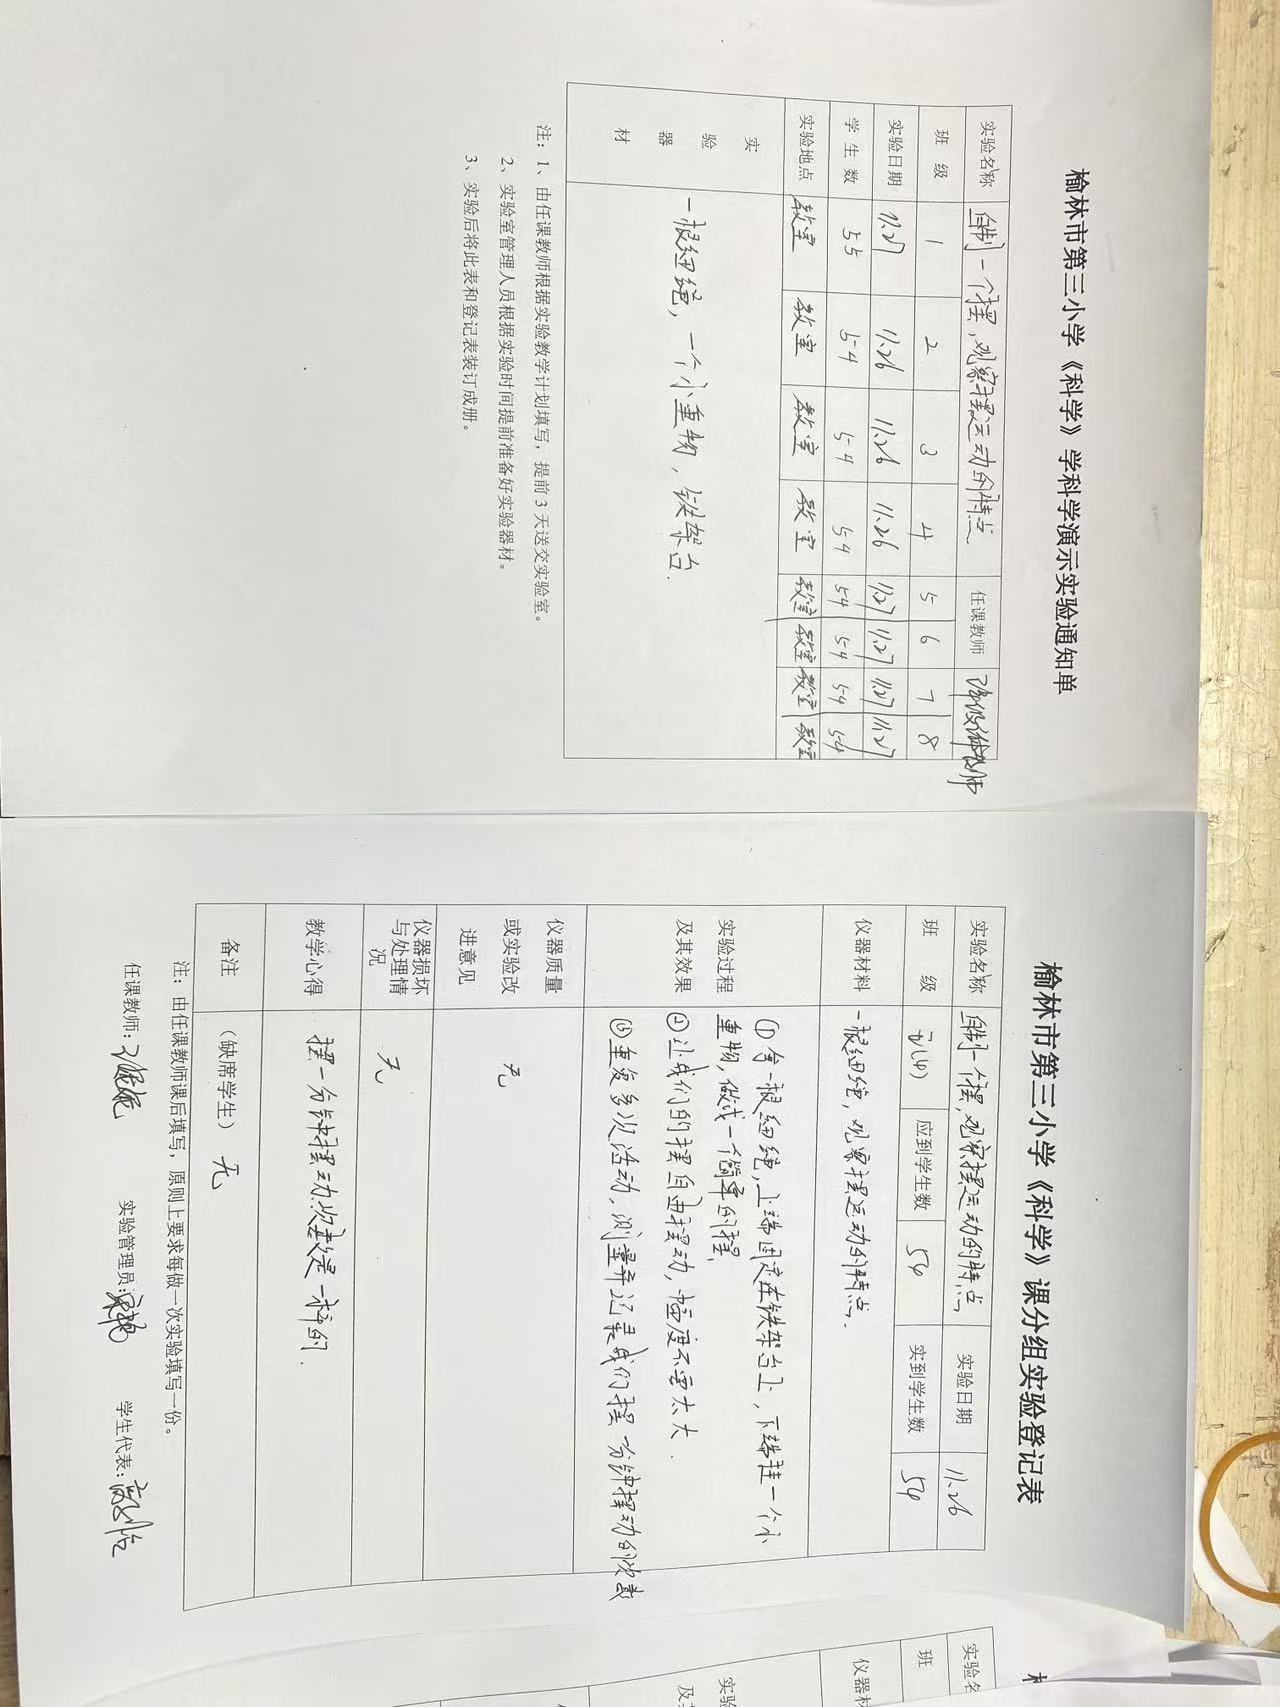 榆林市第三小学《科学》学科学演示实验通知单
实验名称 自制一个摆，观察摆运动的特点 任课教师
班 级 1 2 3 4 5 6 7 8
实验日期 11.27 11.26 11.26 11.26 11.27 11.27 11.27 11.27
学 生 数 55 54 54 54 54 54 54 54
实验地点 教室 教室 教室 教室 教室 教室 教室 教室
实 验 器 材 一根细绳，一个小重物，铁架台.
注：1、由任课教师根据实验教学计划填写，提前 3 天送交实验室。
2、实验室管理人员根据实验时间提前准备好实验器材。
3、实验后将此表和登记表装订成册。
榆林市第三小学《科学》课分组实验登记表
实验名称 自制一个摆，观察摆运动的特点 实验日期 11.26
班 级 应到学生数 54 实到学生数 54
仪器材料 一根细绳，观察摆运动的特点.
实验过程及其效果
①令一根细绳，上端固定在铁架台上，下端挂一个小
重物，做成一个简单的摆.
②让我们的摆自由摆动，幅度不要太大.
③重复多次活动，测量并记录我们摆一分钟摆动的次数
仪器质量或实验改进意见 无
仪器损坏与处理情况 无
教学心得 摆一分钟摆动次数是一样的.
备注 （缺席学生） 无
注：由任课教师课后填写，原则上要求每做一次实验填写一份。
任课教师： 实验管理员： 学生代表：
榆
实验名
班
仪器材
实验
及其